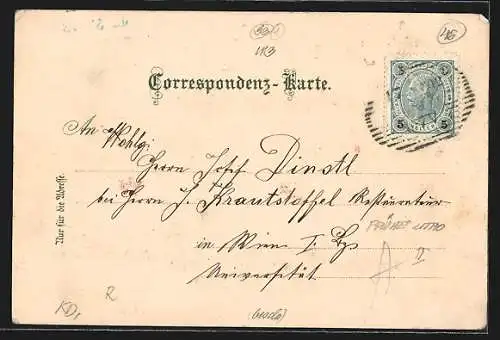 Correspondenz-Karte.
An Wohlg:
Herrn Josef Dinstl
bei Herrn J. Krautstoffel Restaurateur
in Wien I. Bez
Universität
Nur für die Adresse.
5 5
5 5
113
FRÜHE LITHO
A
R
KD